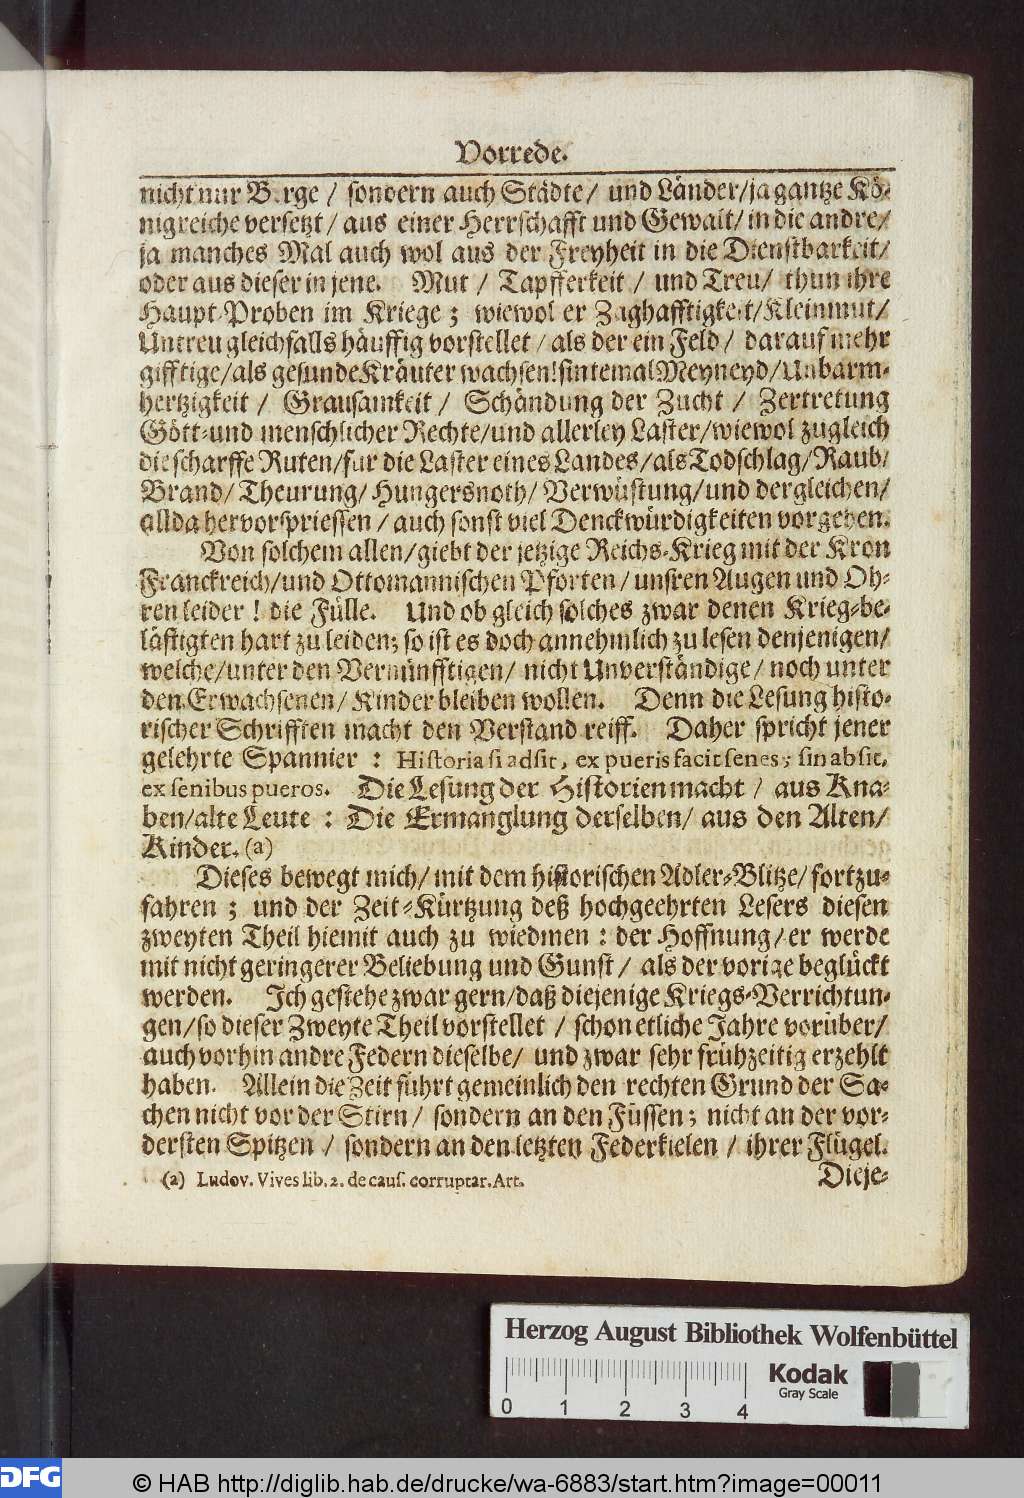 Vorrede.
nicht nur Berge / sondern auch Städte / und Länder/ja gantze Kö-
nigreiche versetzt / aus einer Herrschafft und Gewalt / in die andre/
ja manches Mal auch wol aus der Freyheit in die Dienstbarkeit/
oder aus dieser in jene. Mut / Tapfferkeit / und Treu/ thun ihre
Haupt-Proben im Kriege; wiewol er Zaghafftigkeit/Kleinmut/
Untreu gleichfalls häuffig vorstellet / als der ein Feld / darauf mehr
gifftige/als gesunde Kräuter wachsen! sintemal Meyneyd/Unbarm-
hertzigkeit / Grausamkeit / Schändung der Zucht / Zertretung
Gött-und menschlicher Rechte/und allerley Laster/wiewol zugleich
die scharffe Ruten/fur die Laster eines Landes/als Todschlag/Raub/
Brand/ Theurung/ Hungersnoth/ Verwüstung/und dergleichen/
allda hervorspriessen / auch sonst viel Denckwürdigkeiten vorgehen.
Von solchem allen/giebt der jetzige Reichs-Krieg mit der Kron
Franckreich/und Ottomannischen Pforten / unsren Augen und Oh-
ren leider ! die Fülle. Und ob gleich solches zwar denen Krieg-be-
lästigten hart zu leiden; so ist es doch annehmlich zu lesen denjenigen/
welche/unter den Vernünfftigen/ nicht Unverständige / noch unter
den Erwachsenen/ Kinder bleiben wollen. Denn die Lesung histo-
rischer Schrifften macht den Verstand reiff. Daher spricht jener
gelehrte Spannier : Historia si adsit, ex pueris facit senes; sin absit,
ex senibus pueros. Die Lesung der Historien macht / aus Kna-
ben/alte Leute : Die Ermanglung derselben/ aus den Alten/
Kinder. (a)
Dieses bewegt mich/ mit dem historischen Adler-Blitze/ fortzu-
fahren ; und der Zeit-Kürtzung deß hochgeehrten Lesers diesen
zweyten Theil hiemit auch zu wiedmen : der Hoffnung/ er werde
mit nicht geringerer Beliebung und Gunst / als der vorige beglückt
werden. Ich gestehe zwar gern/daß diejenige Kriegs-Verrichtun-
gen/so dieser Zweyte Theil vorstellet / schon etliche Jahre vorüber/
auch vorhin andre Federn dieselbe/ und zwar sehr frühzeitig erzehlt
haben. Allein die Zeit führt gemeinlich den rechten Grund der Sa-
chen nicht vor der Stirn / sondern an den Füssen; nicht an der vor-
dersten Spitzen / sondern an den letzten Federkielen / ihrer Flügel.
Dieje-
(a) Ludov. Vives lib. 2. de caus. corruptar. Art.
Herzog August Bibliothek Wolfenbüttel
0 1 2 3 4
Kodak
Gray Scale
DFG
© HAB http://diglib.hab.de/drucke/wa-6883/start.htm?image=00011